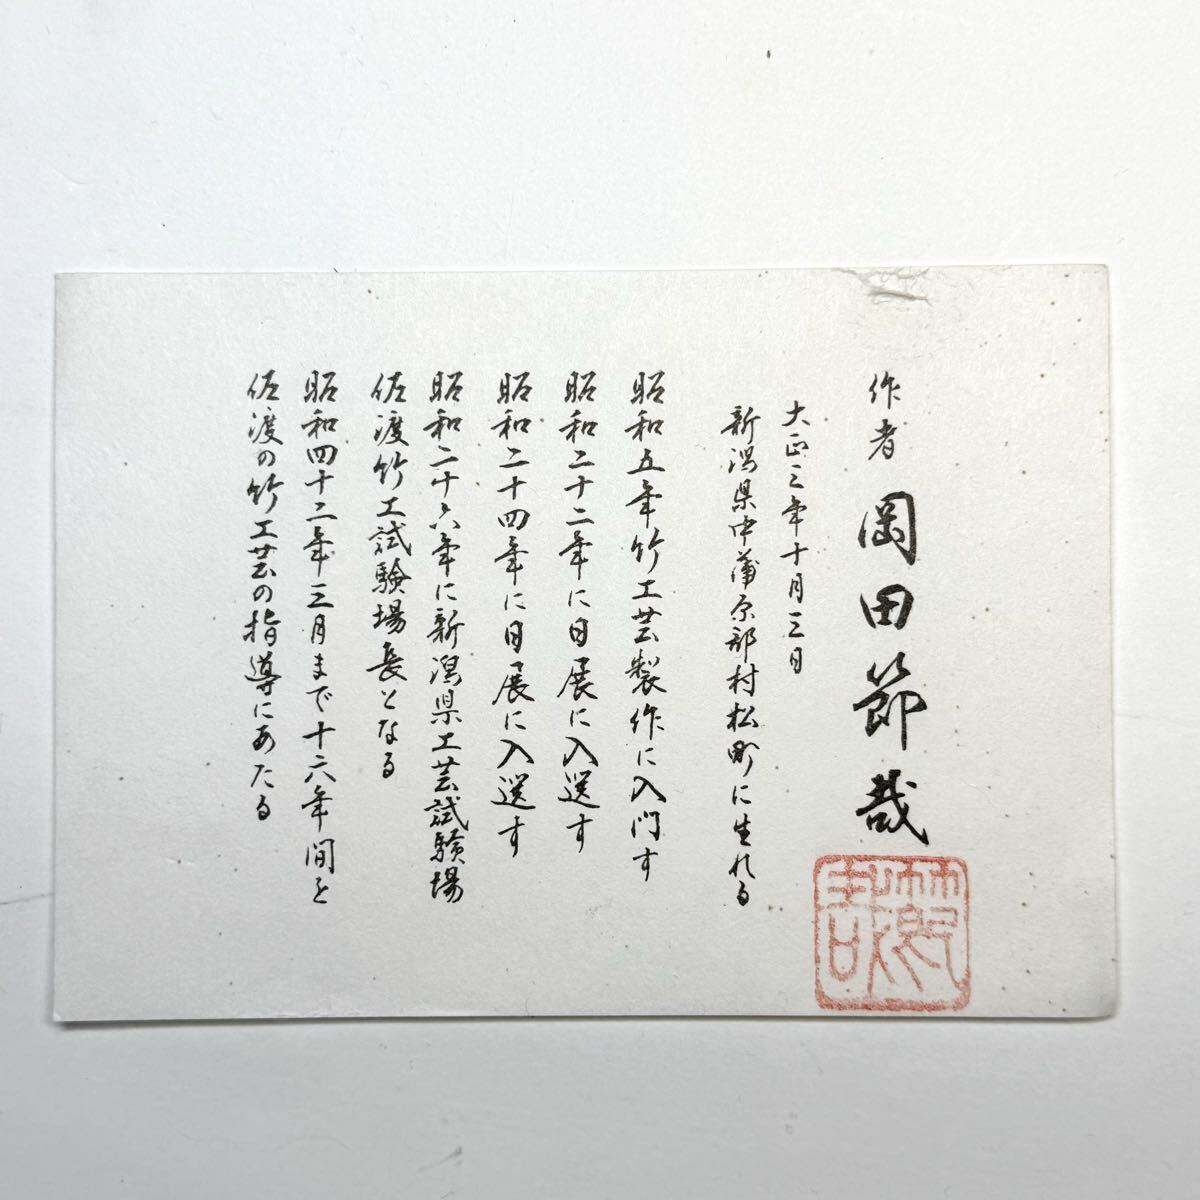 作者 岡田節哉
大正三年十月三日
新潟県中蒲原郡村松町に生れる
昭和五年竹工芸製作に入門す
昭和二十二年に日展に入選す
昭和二十四年に日展に入選す
昭和二十六年に新潟県工芸試験場
佐渡竹工試験場長となる
昭和四十二年三月まで十六年間を
佐渡の竹工芸の指導にあたる
節哉